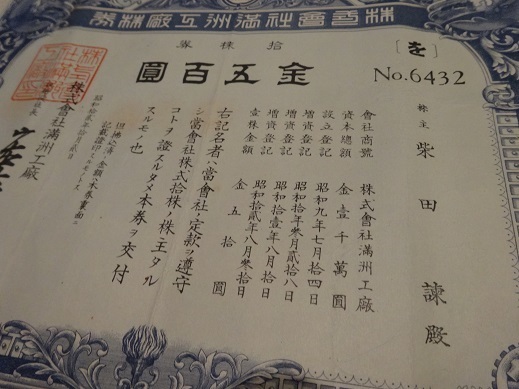 株式會社滿洲工廠株券
拾株券
[を]
金五百圓
No.6432
株主 柴田 諫殿
會社商號 株式會社滿洲工廠
資本總額 金壹千萬圓
設立登記 昭和九年七月十四日
増資登記 昭和拾年參月貳拾八日
増資登記 昭和拾壹年八月拾日
増資登記 昭和拾貳年八月參拾日
壹株金額 金五拾圓
右記名者ハ當會社ノ定款ヲ遵守
シ當會社株式拾株ノ株主タル
コトヲ證スルタメ本券ヲ交付
スルモノ也
但拂込濟ノ金額ハ本券裏面ニ
記載證印スルモノトス
株式會社滿洲工廠